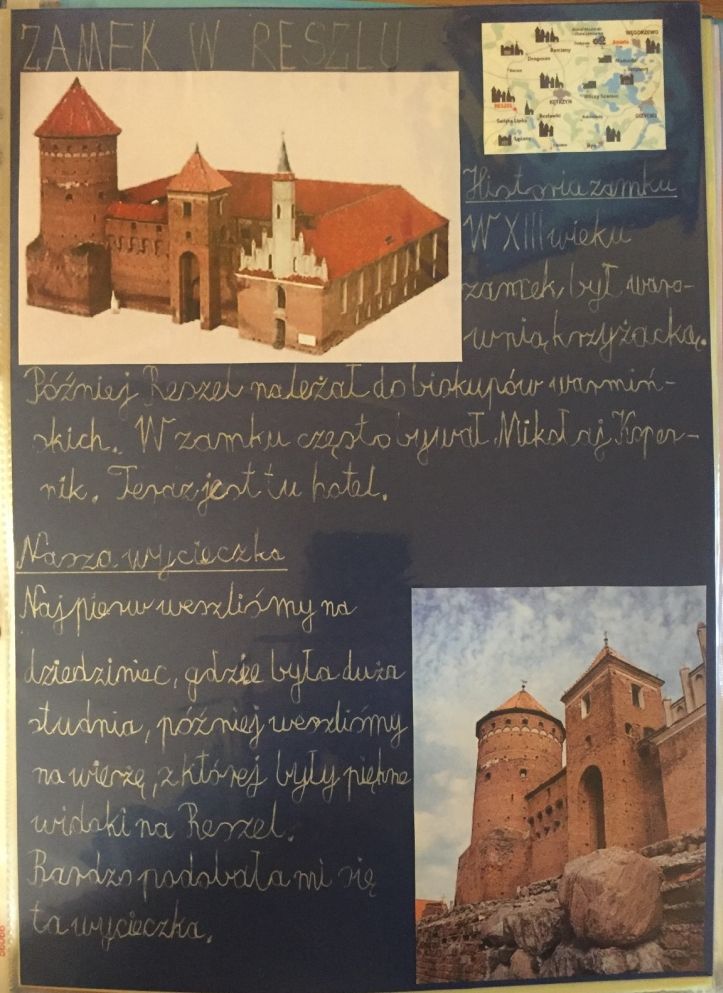 ZAMEK W RESZLU
WĘGORZEWO
Barciany
Drogosze
KĘTRZYN
RESZEL
Święta Lipka
GIŻYCKO
Ryn
Historia zamku
W XIII wieku
zamek był waro-
wnią krzyżacką.
Później Reszel należał do biskupów warmiń-
skich. W zamku często bywał Mikołaj Koper-
nik. Teraz jest tu hotel.
Nasza wycieczka
Najpierw weszliśmy na
dziedziniec, gdzie była duża
studnia, później weszliśmy
na wierzę, z której były piękne
widoki na Reszel.
Bardzo podobała mi się
ta wycieczka.